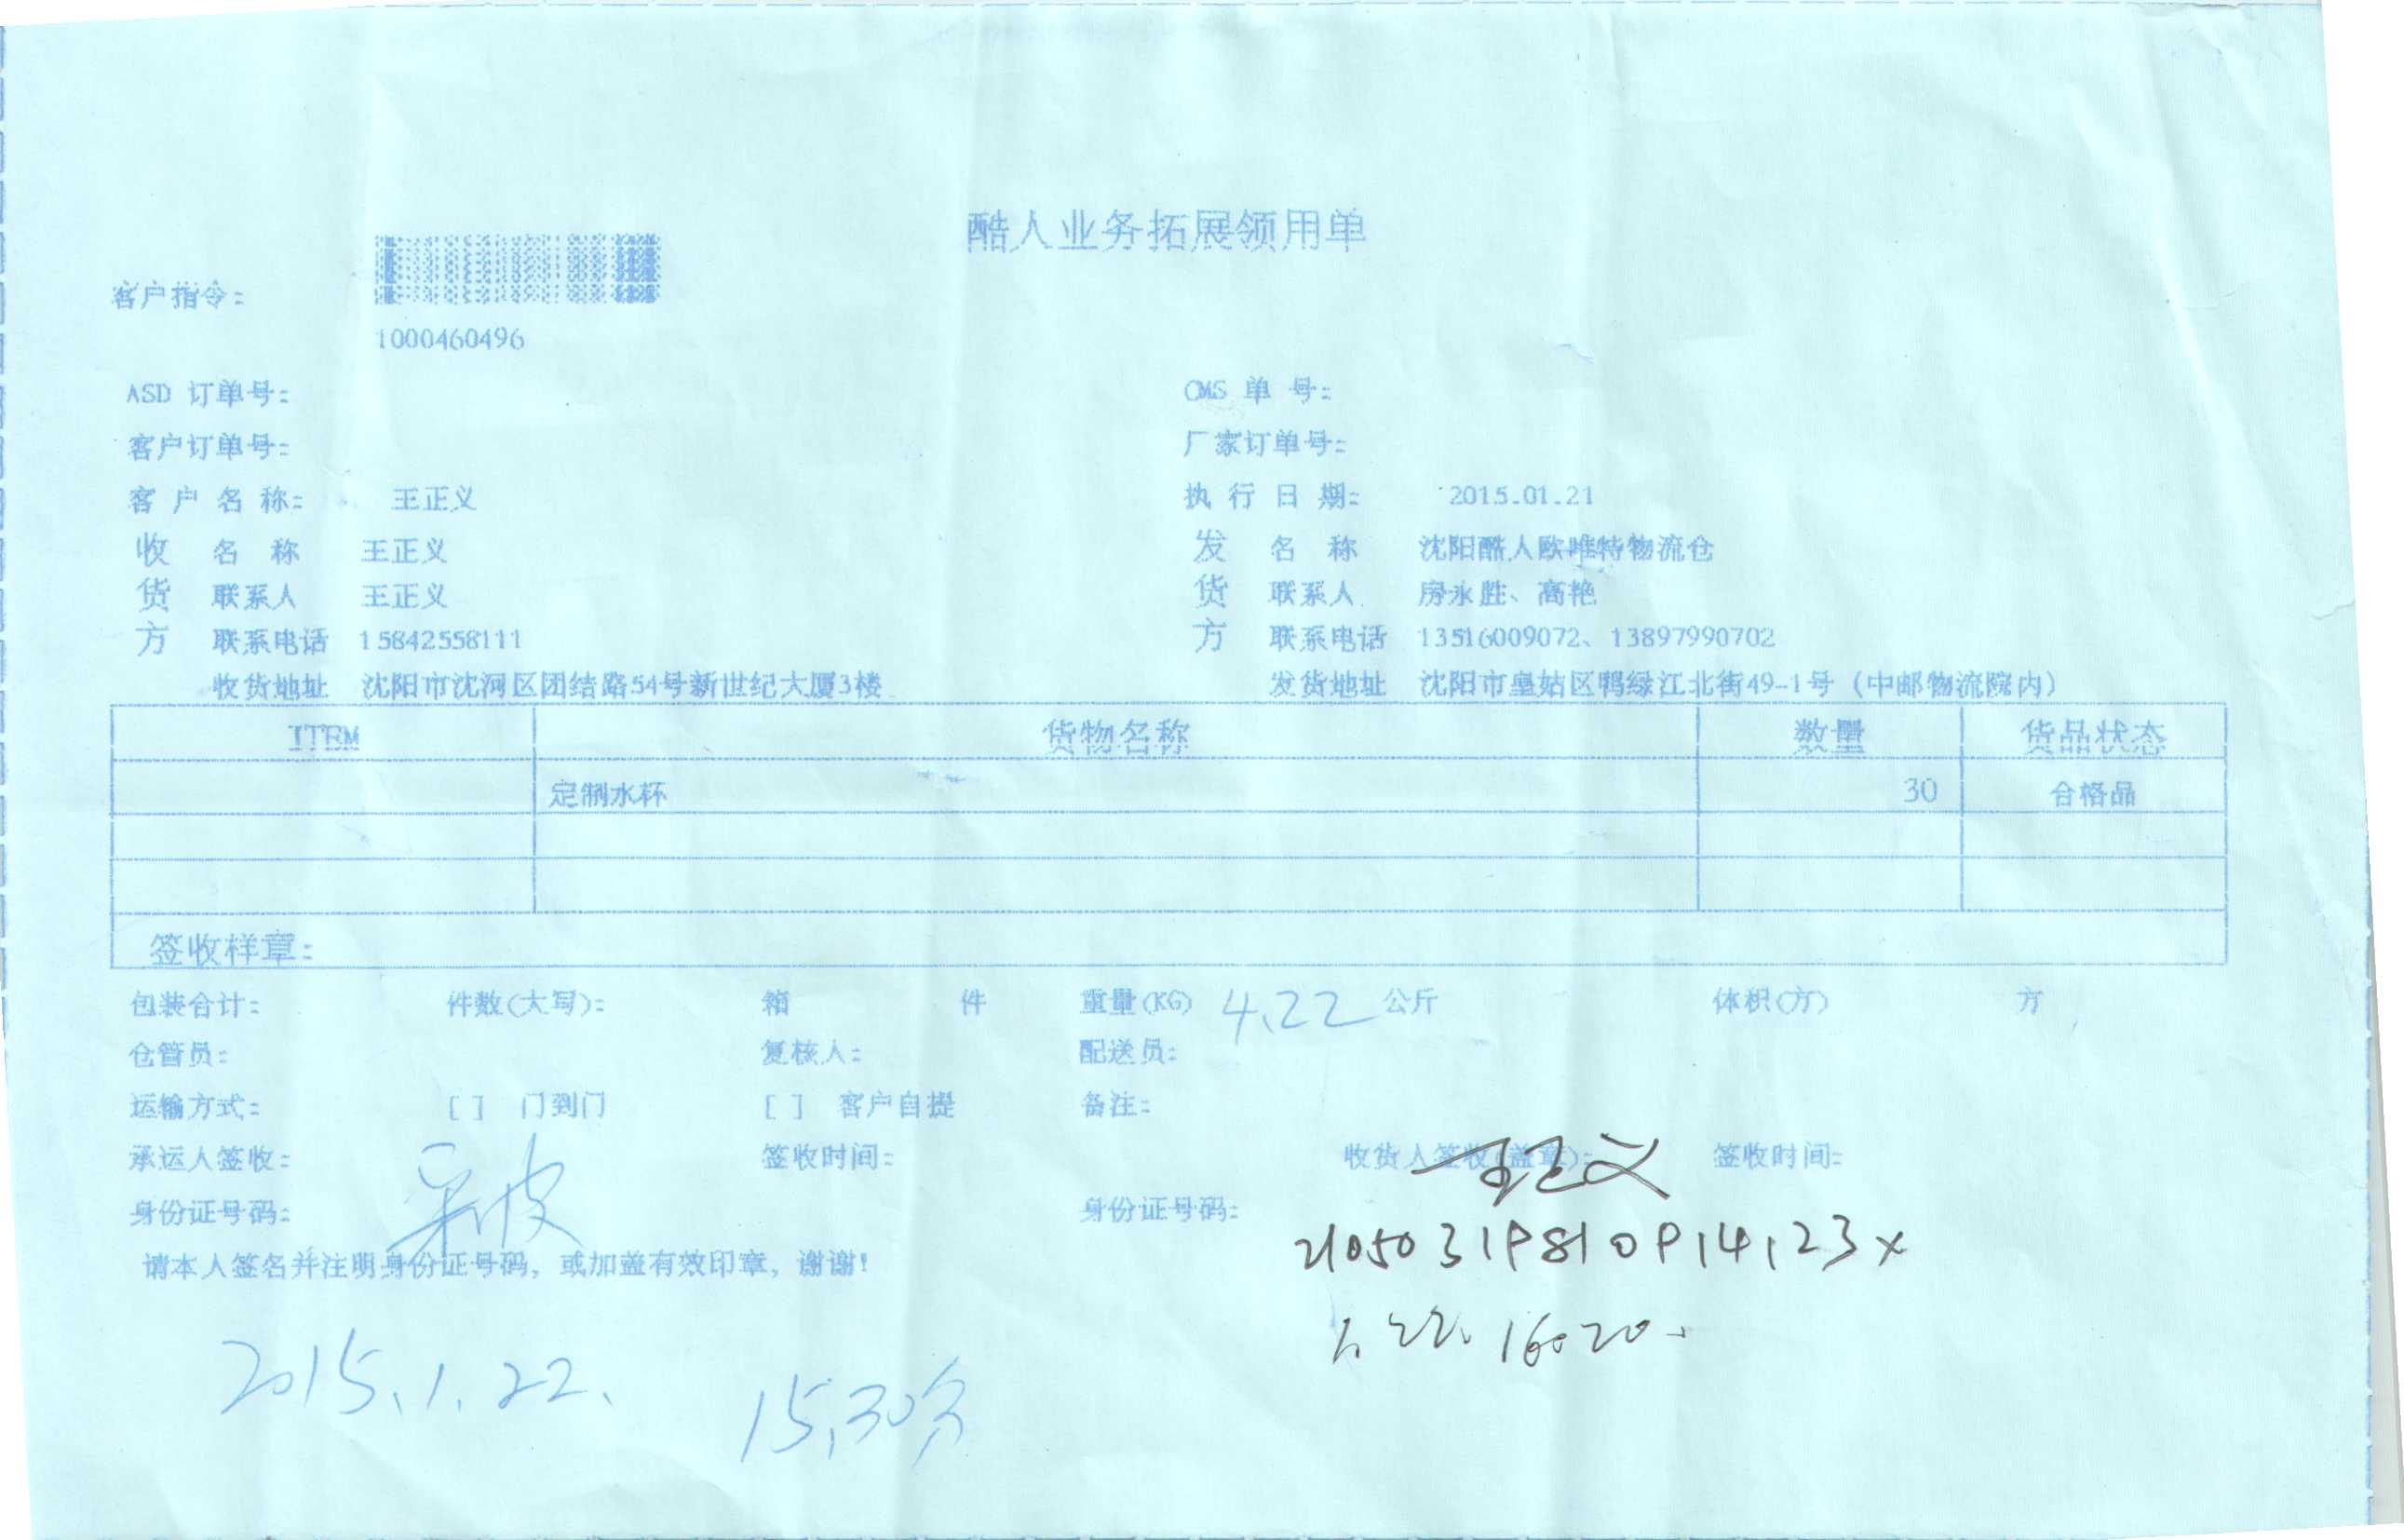 酷人业务拓展领用单
客户指令:
1000460496
ASD 订单号: CMS 单 号:
客户订单号: 厂家订单号:
客 户 名 称: 王正义 执 行 日 期: 2015.01.21
收 名 称 王正义 发 名 称 沈阳酷人欧唯特物流仓
货 联系人 王正义 货 联系人 房永胜、高艳
方 联系电话 15842558111 方 联系电话 13516009072、13897990702
收货地址 沈阳市沈河区团结路54号新世纪大厦3楼 发货地址 沈阳市皇姑区鸭绿江北街49-1号 (中邮物流院内)
ITEM 货物名称 数量 货品状态
定制水杯 30 合格品
签收样章:
包装合计: 件数(大写): 箱 件 重量(KG) 4.22 公斤 体积(方) 方
仓管员: 复核人: 配送员:
运输方式: [ ] 门到门 [ ] 客户自提 备注:
承运人签收: 签收时间: 收货人签收(盖章): 王正义 签收时间:
身份证号码: 身份证号码:
请本人签名并注明身份证号码, 或加盖有效印章, 谢谢!
1.22. 16:20.
2015.1.22. 15.30分